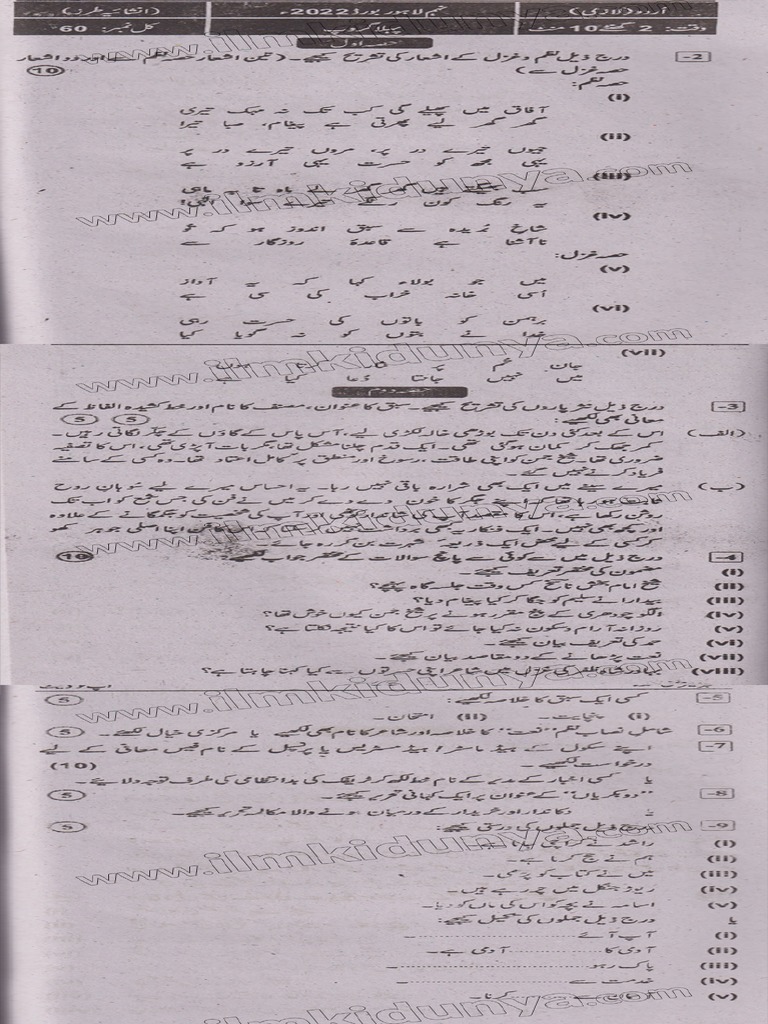 اُردو (لازمی) نہم لاہور بورڈ 2022ء (انشائیہ طرز)
وقت: 2 گھنٹے 10 منٹ پہلا گروپ کل نمبر: 60
حصہ اول
2- درج ذیل نظم و غزل کے اشعار کی تشریح کیجیے۔ (تین اشعار حصہ نظم سے اور دو اشعار
حصہ غزل سے) (10)
حصہ نظم:
(i)
آفاق میں پھیلے گی کب تک نہ مہک تیری
گھر گھر لیے پھرتی ہے پیغام، صبا تیرا
(ii)
جیوں تیرے در پر، مروں تیرے در پر
یہی مجھ کو حسرت یہی آرزو ہے
(iii)
یہ رنگ کون رنگے تیرے سوا الٰہی!
(iv)
شاخِ بُریدہ سے سبق اندوز ہو کہ تُو
ناآشنا ہے قاعدۂ روزگار سے
حصہ غزل:
(v)
میں جو بولا، کہا کہ یہ آواز
اُسی خانہ خراب کی سی ہے
(vi)
برہمن کو باتوں کی حسرت رہی
خدا نے بتوں کو نہ گویا کیا
(vii)
جان تم پر
میں نہیں جانتا دُعا کیا ہے
حصہ دوم
3- درج ذیل نثرپاروں کی تشریح کیجیے۔ سبق کا عنوان، مصنف کا نام اور خط کشیدہ الفاظ کے
معانی بھی لکھیے: (5) (5)
(الف) اس کے بعد کئی دن تک بوڑھی خالہ لکڑی لیے، آس پاس کے گاؤں کے چکر لگاتی رہیں۔
کمر جھک کر کمان ہو گئی تھی۔ ایک قدم چلنا مشکل تھا، مگر بات آ پڑی تھی، اس کا تصفیہ
ضروری تھا۔ شیخ جمن کو اپنی طاقت، رسوخ اور منطق پر کامل اعتماد تھا۔ وہ کسی کے سامنے
فریاد کرنے نہیں گئے۔
(ب) میرے سینے میں ایک بھی شرارہ باقی نہیں رہا۔ یہ احساس میرے لیے سوہانِ روح
ثابت ہو رہا تھا کہ اپنے جگر کا خون دے دے کر میں نے فن کی جس شمع کو اب تک
روشن رکھا ہے، اور آپ کی شخصیت کو چمکانے کے علاوہ
اور کچھ بھی نہیں۔ ایک فنکار یہ کبھی برداشت نہیں فن اپنا اصلی جوہر کھو
کر کسی کے لیے محض ایک ذریعہ شہرت بن کر رہ جائے۔
4- درج ذیل میں سے کوئی سے پانچ سوالات کے مختصر جواب لکھیے۔ (10)
(i) مضمون کی مختصر تعریف کیجیے۔
(ii) شیخ امام بخش ناسخ کس وقت جلسہ گاہ پہنچے؟
(iii) پہریدار نے سلیم کو جگا کر کیا پیغام دیا؟
(iv) الگو چودھری کے پنچ مقرر ہونے پر شیخ جمن کیوں خوش تھا؟
(v) روزانہ آرام و سکون نہ کیا جائے تو اس کا کیا نتیجہ نکلتا ہے؟
(vi) حمد کی تعریف بیان کیجیے۔
(vii) نعت پڑھانے کے دو مقاصد بیان کیجیے۔
(viii) بہادر شاہ ظفر کی غزل میں شاعر اپنی حسرتوں سے کیا کہنا چاہتا ہے؟
5- کسی ایک سبق کا خلاصہ لکھیے: (5)
(i) پنچایت۔ (ii) امتحان۔
6- شاملِ نصاب نظم "نعت" کا خلاصہ اور شاعر کا نام بھی لکھیے یا مرکزی خیال لکھیے۔ (5)
7- اپنے سکول کے ہیڈ ماسٹر/ہیڈ مسٹریس یا پرنسپل کے نام فیس معافی کے لیے
درخواست لکھیے۔ (10)
یا کسی اخبار کے مدیر کے نام خط لکھ کر ٹریفک کی بدانتظامی کی طرف توجہ دلایئے۔
8- "دو بکریاں" کے عنوان پر ایک کہانی تحریر کیجیے۔ (5)
یا دکاندار اور خریدار کے درمیان ہونے والا مکالمہ تحریر کیجیے۔
9- درج ذیل جملوں کی درستی کیجیے: (5)
(i) راشد نے
(ii) ہم نے حج کرنا ہے۔
(iii) میں نے کتاب کو پڑھی۔
(iv) ریوڑ جنگل میں چر رہے ہیں۔
(v) اسامہ نے بچہ کو اس کی ماں کو دیا۔
یا درج ذیل جملوں کی تکمیل کیجیے:
(i) آپ آئے ............۔
(ii) آدمی کا ............ آدمی ہے۔
(iii) پاک رہو ............۔
(iv) خدمت سے ............۔
(v)
www.ilmkidunya.com
www.ilmkidunya.com
www.ilmkidunya.com
www.ilmkidunya.com
www.ilmkidunya.com